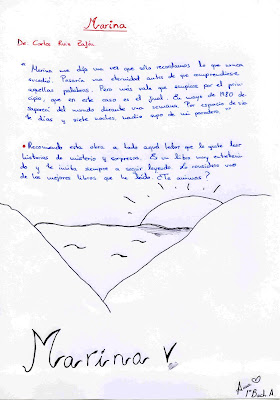 Marina
De: Carlos Ruiz Zafón
" Marina me dijo una vez que sólo recordamos lo que nunca
sucedió. Pasaría una eternidad antes de que comprendiese
aquellas palabras. Pero más vale que empiece por el prin-
cipio, que en este caso es el final. En mayo de 1980 de-
saparecí del mundo durante una semana. Por espacio de sie-
te días y siete noches, nadie supo de mi paradero. "
• Recomiendo esta obra a todo aquel lector que le guste leer
historias de misterio y sorpresa. Es un libro muy entreteni-
do y te invita siempre a seguir leyendo. Lo considero uno
de los mejores libros que he leído. ¿Te animas?
Marina
1º Bach A